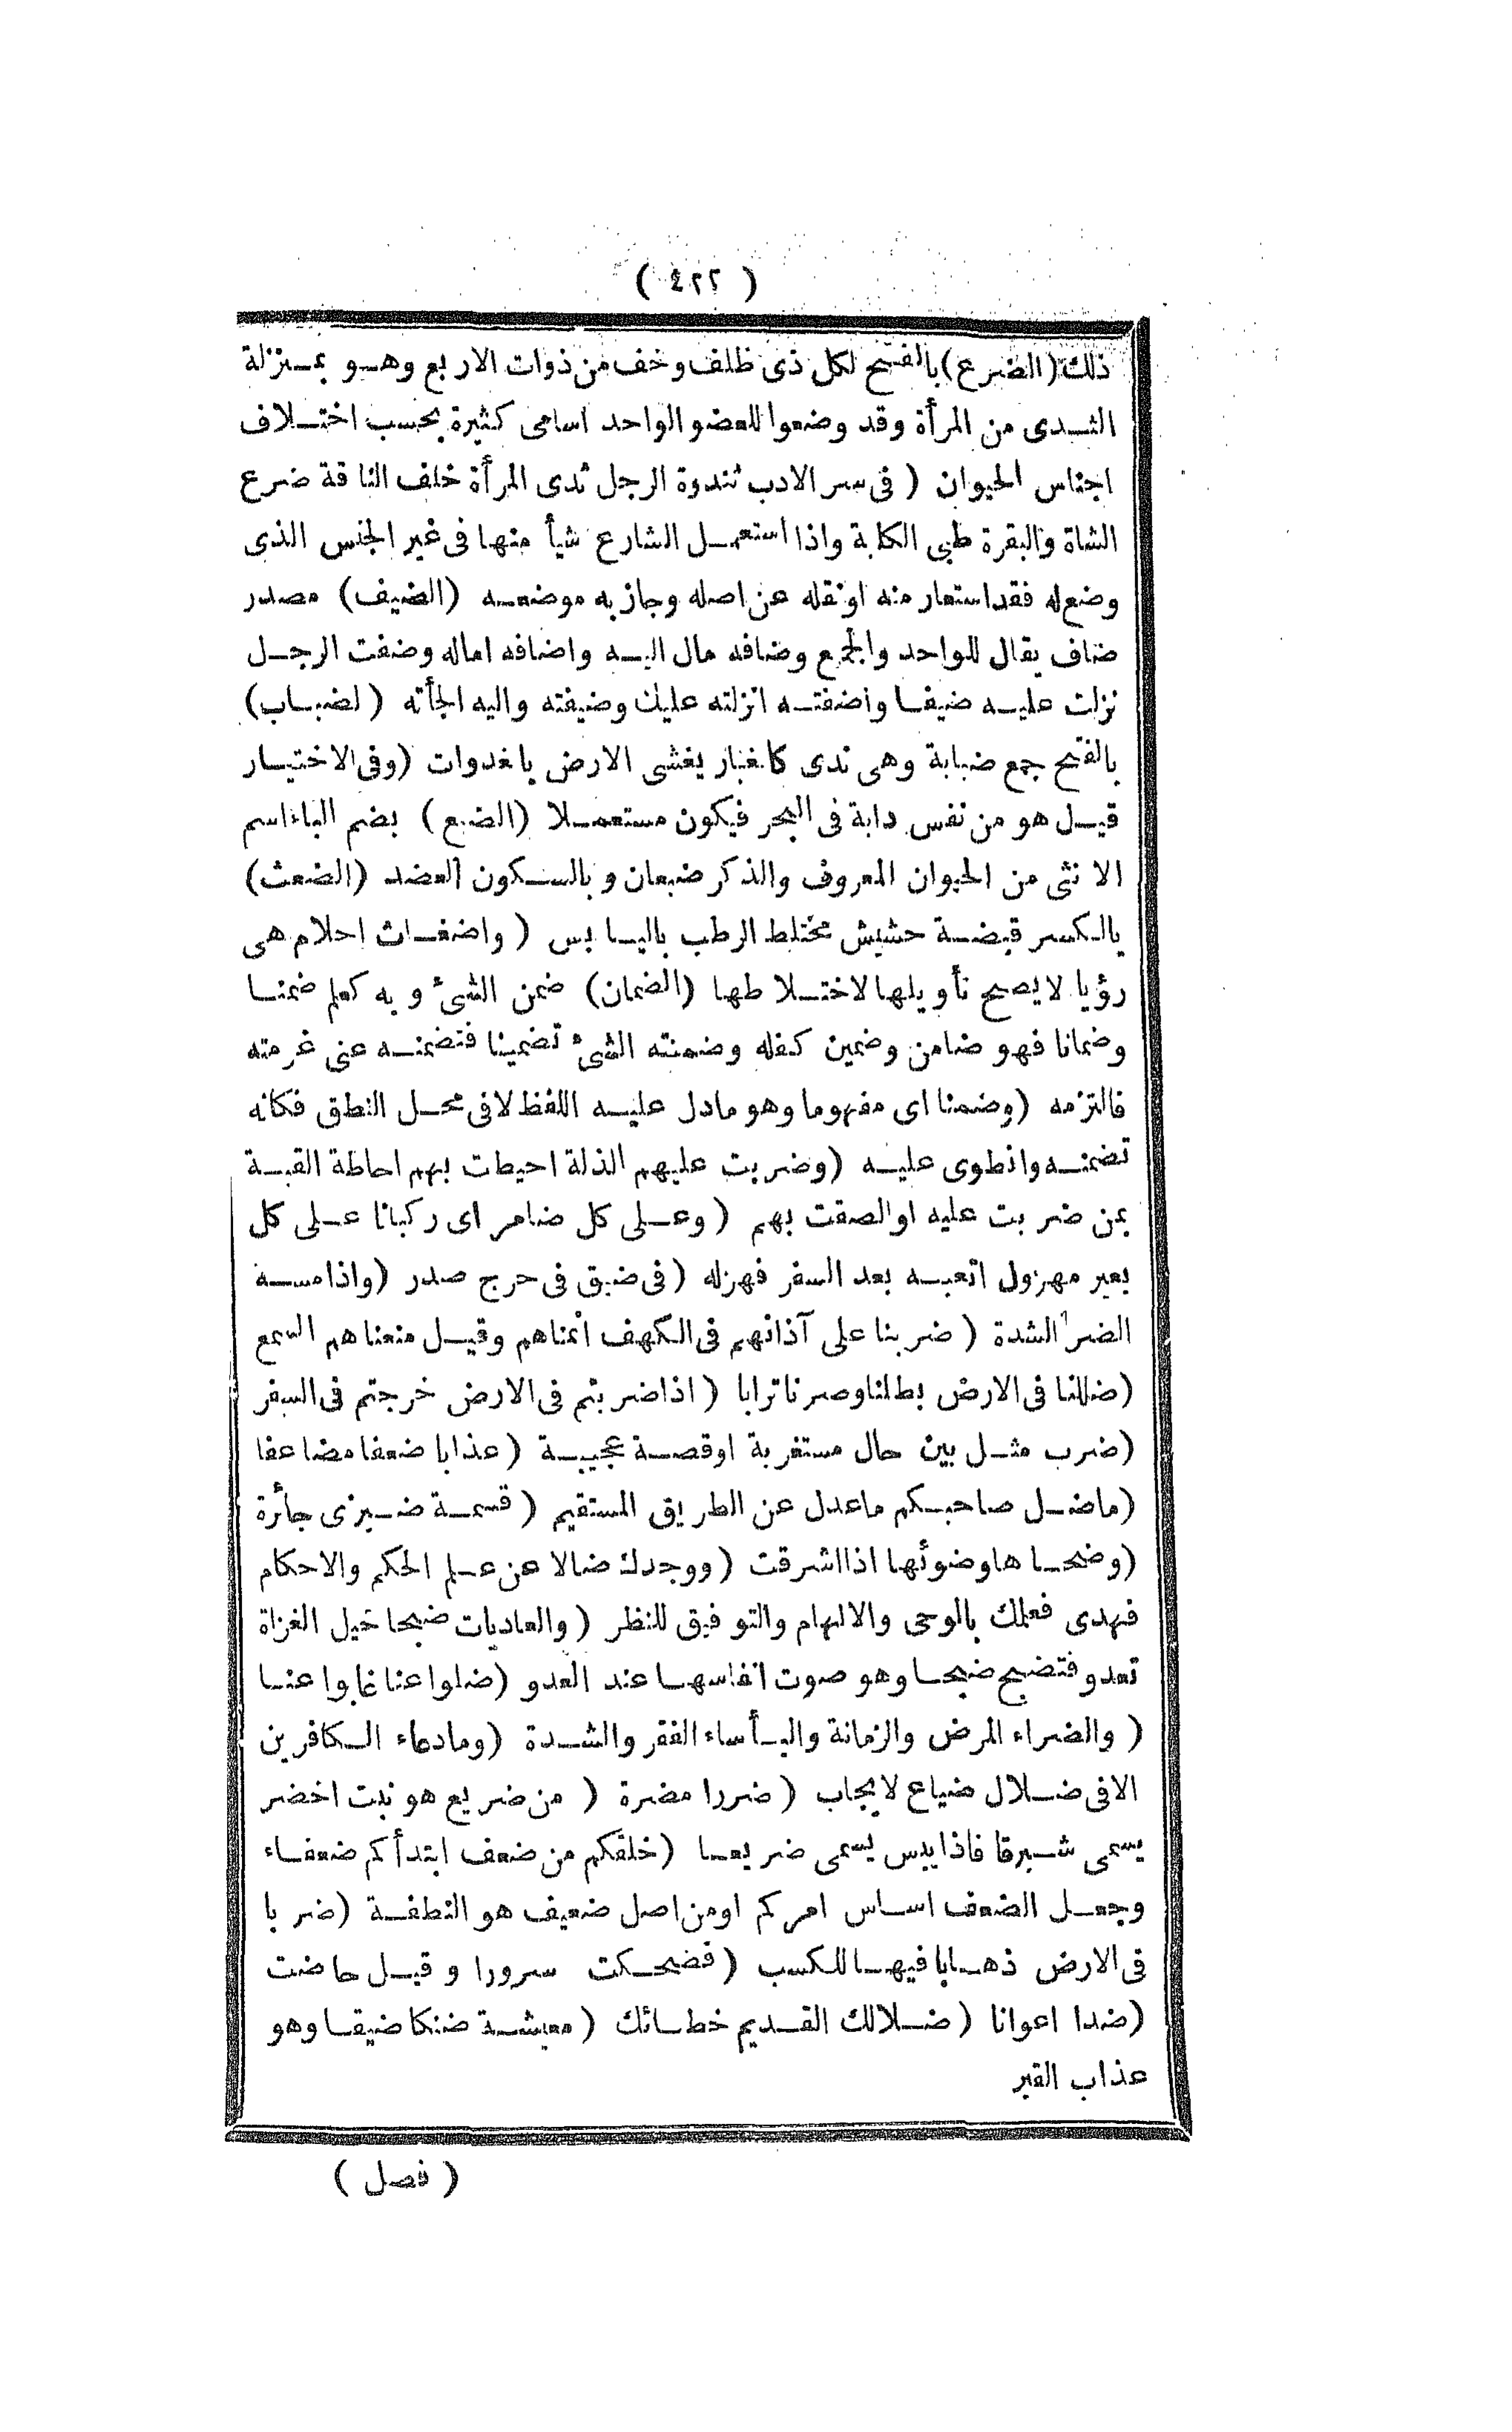 ( ٤٢٢ )
ذلك (الضرع) بالفتح لكل ذى ظلف وخف من ذوات الاربع وهو بمنزلة
الثدى من المرأة وقد وضعوا للعضو الواحد اسامى كثيرة بحسب اختلاف
اجناس الحيوان ( فى سر الادب ثندوة الرجل ثدى المرأة خلف الناقة ضرع
الشاة والبقرة طبى الكلبة واذا استعمل الشارع شيأ منها فى غير الجنس الذى
وضع له فقد استعار منه او نقله عن اصله وجاز به موضعه (الضيف) مصدر
ضاف يقال للواحد والجمع وضافه مال اليه واضافه اماله وضفت الرجل
نزلت عليه ضيفا واضفته انزلته عليك وضيفته واليه الجأته (لضباب)
بالفتح جمع ضبابة وهى ندى كالغبار يغشى الارض باغدوات (وفى الاختيار
قيل هو من نفس دابة فى البحر فيكون مستعملا (الضبع) بضم الباء اسم
الانثى من الحيوان المعروف والذكر ضبعان وبالسكون العضد (الضغث)
بالكسر قبضة حشيش مختلط الرطب باليابس ( واضغاث احلام هى
رؤيا لا يصح تأويلها لاختلاطها (الضمان) ضمن الشئ وبه كعلم ضمنا
وضمانا فهو ضامن وضمين كفله وضمنته الشئ تضمينا فتضمنه عنى غرمته
فالتزمه (وضمنا اى مفهوما وهو مادل عليه اللفظ لا فى محل النطق فكانه
تضمنه وانطوى عليه (وضربت عليهم الذلة احيطت بهم احاطة القبة
بمن ضربت عليه او الصقت بهم ( وعلى كل ضامر اى ركبانا على كل
بعير مهزول اتعبه بعد السفر فهزله (فى ضيق فى حرج صدر (واذا مسه
الضر الشدة ( ضربنا على آذانهم فى الكهف انمناهم وقيل منعناهم السمع
(ضللنا فى الارض بطلنا وصرنا ترابا ( اذا ضربتم فى الارض خرجتم فى السفر
(ضرب مثل بين حال مستغربة او قصة عجيبة (عذابا ضعفا مضاعفا
(ماضل صاحبكم ماعدل عن الطريق المستقيم ( قسمة ضيزى جائرة
(وضحاها وضوئها اذا اشرقت (ووجدك ضالا عن علم الحكم والاحكام
فهدى فعلمك بالوحى والالهام والتوفيق للنظر (والعاديات ضبحا خيل الغزاة
تعدو فتضبح ضبحا وهو صوت انفاسها عند العدو (ضلوا عنا غابوا عنا
( والضراء المرض والزمانة والبأساء الفقر والشدة (ومادعاء الكافرين
الا فى ضلال ضياع لا يجاب ( ضررا مضرة ( من ضريع هو نبت اخضر
يسمى شبرقا فاذا يبس يسمى ضريعا (خلقكم من ضعف ابتدأكم ضعفاء
وجعل الضعف اساس امركم او من اصل ضعيف هو النطفة (ضربا
فى الارض ذهابا فيها للكسب (فضحكت سرورا وقيل حاضت
(ضدا اعوانا (ضلالك القديم خطائك (معيشة ضنكا ضيقا وهو
عذاب القبر
( فصل )